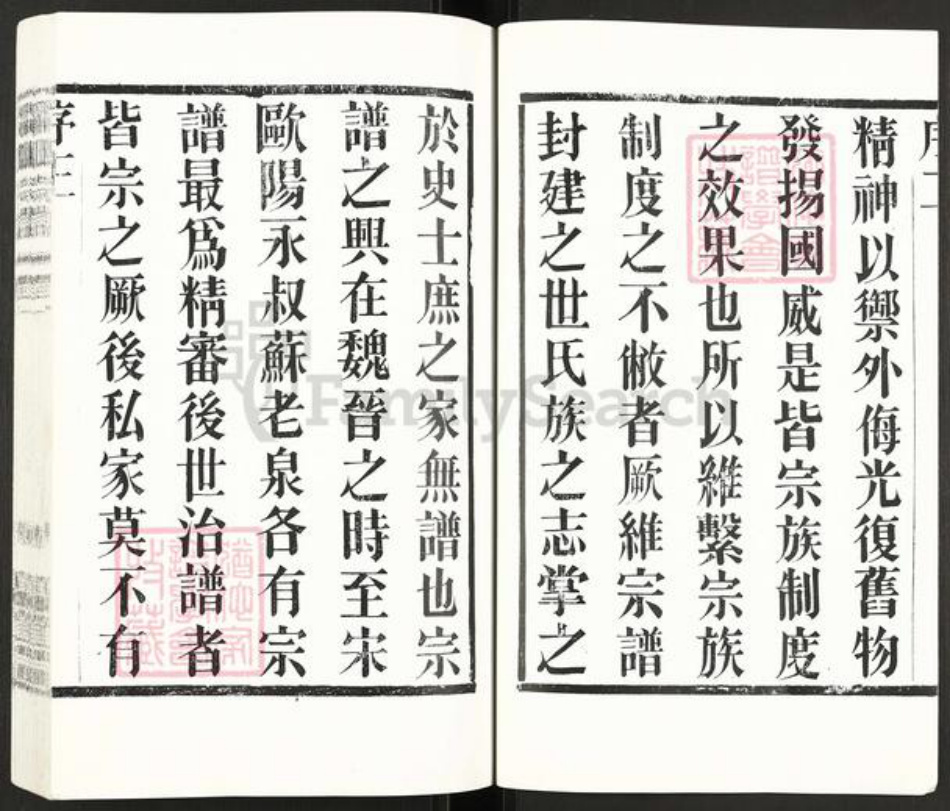 序二
精神以禦外侮光復舊物
發揚國威是皆宗族制度
之效果也所以維繫宗族
制度之不敝者厥維宗譜
封建之世氏族之志掌之
於史士庶之家無譜也宗
譜之興在魏晉之時至宋
歐陽永叔蘇老泉各有宗
譜最爲精審後世治譜者
皆宗之厥後私家莫不有
序三
FamilySearch